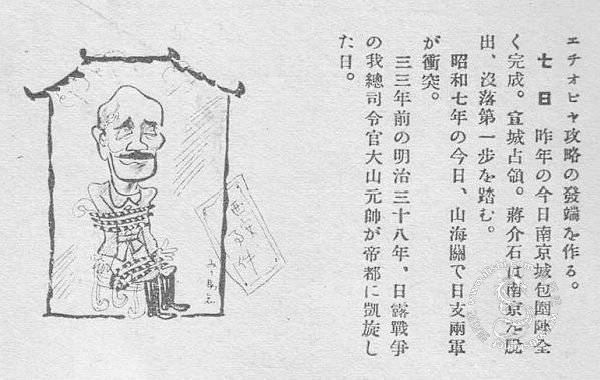 エチオピヤ攻略の發端を作る。
七日　昨年の今日南京城包圍陣全
く完成。宣城占領。蔣介石は南京を脫
出、沒落第一步を踏む。
昭和七年の今日、山海關で日支兩軍
が衝突。
三三年前の明治三十八年、日露戰爭
の我總司令官大山元帥が帝都に凱旋し
た日。